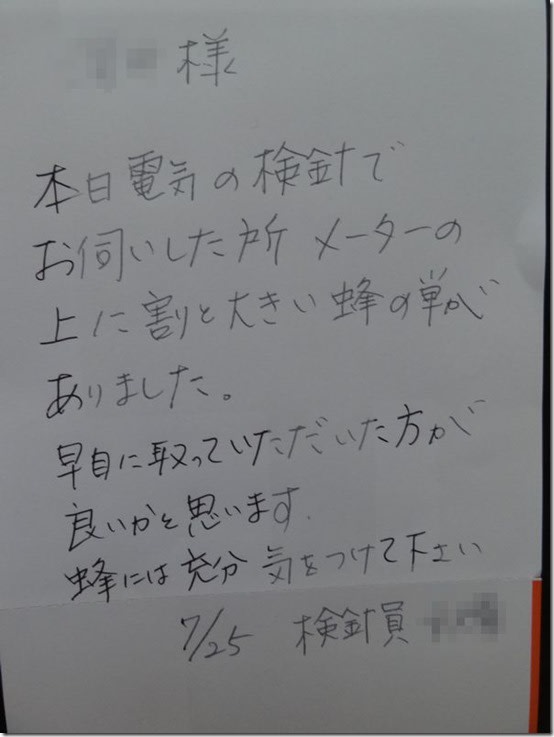 様
本日電気の検針で
お伺いした所 メーターの
上に割と大きい蜂の巣が
ありました。
早目に取っていただいた方が
良いかと思います.
蜂には充分 気をつけて下さい
7/25 検針員